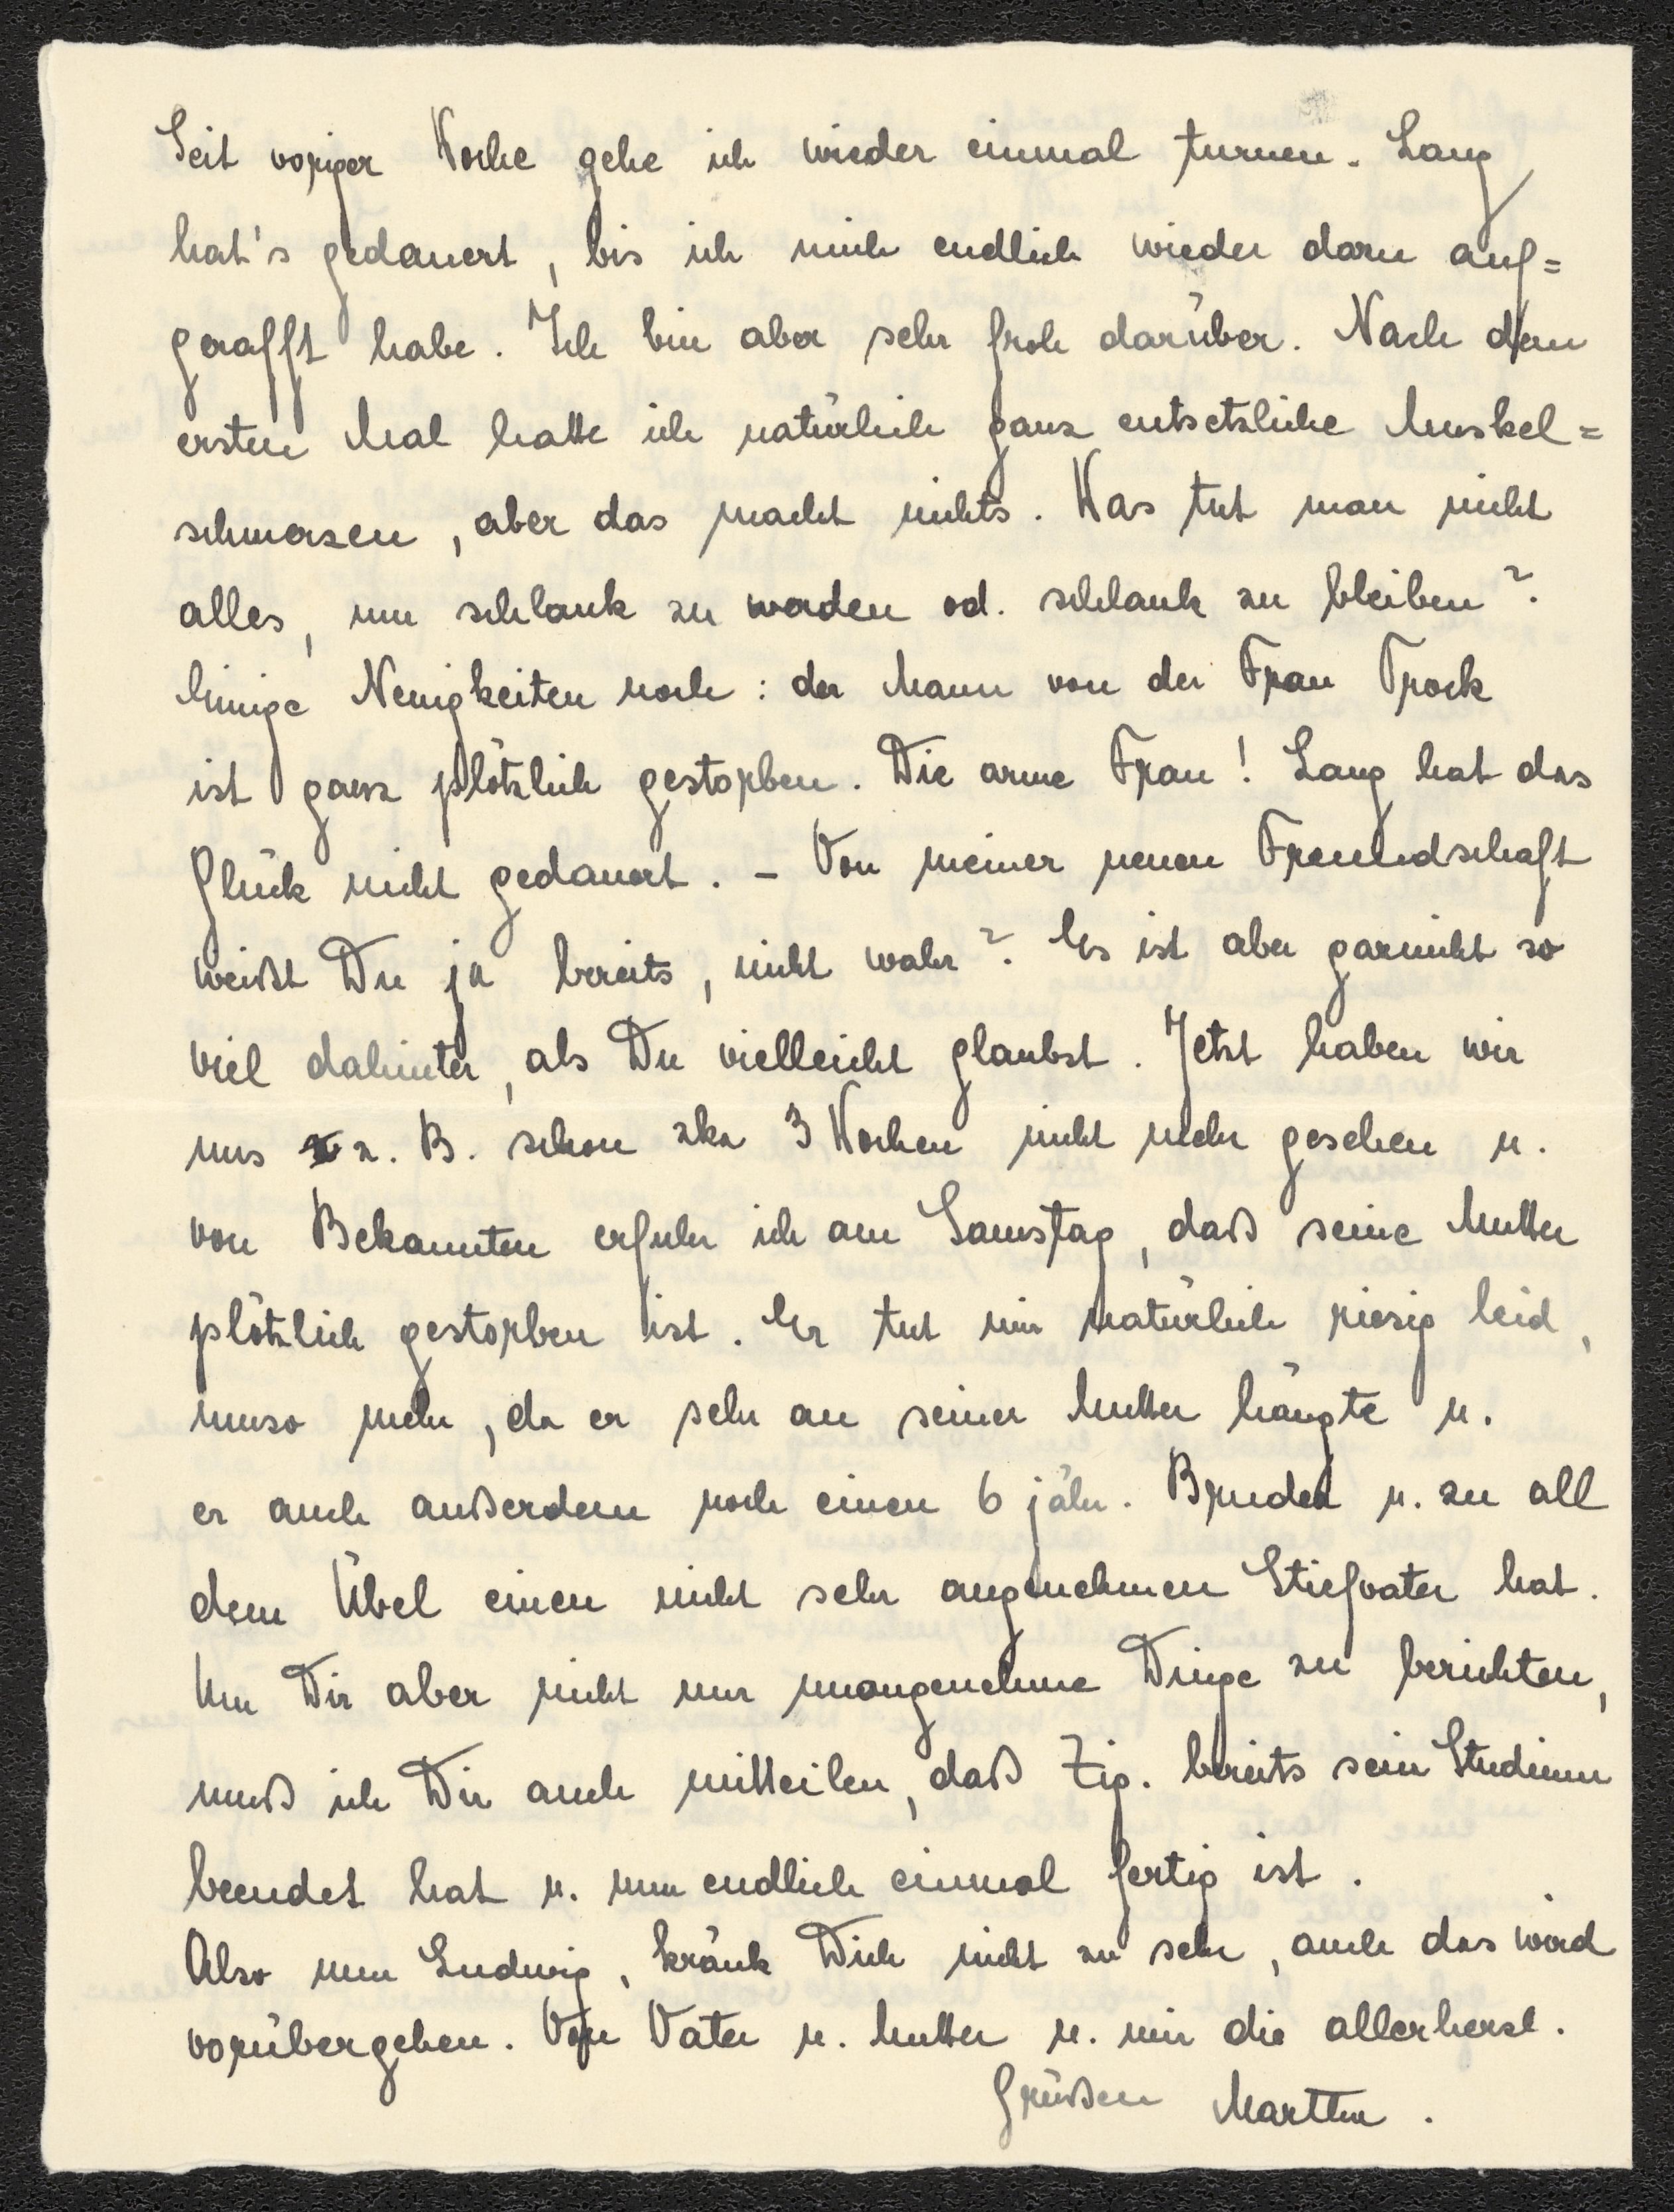 Seit voriger Woche gehe ich wieder einmal turnen. Lang
hat's gedauert, bis ich mich endlich wieder dazu auf=
gerafft habe. Ich bin aber sehr froh darüber. Nach dem
ersten Mal hatte ich natürlich ganz entsetzliche Muskel=
schmerzen, aber das macht nichts. Was tut man nicht
alles, um schlank zu werden od. schlank zu bleiben?
Einige Neuigkeiten noch: der Mann von der Frau
ist ganz plötzlich gestorben. Die arme Frau! Lang hat das
Glück nicht gedauert. – Von meiner neuen Freundschaft
weißt Du ja bereits, nicht wahr? Es ist aber garnicht so
viel dahinter, als Du vielleicht glaubst. Jetzt haben wir
uns z. B. schon zka 3 Wochen nicht mehr gesehen u.
von Bekannten erfuhr ich am Samstag, daß seine Mutter
plötzlich gestorben ist. Er tut mir natürlich riesig leid,
umso mehr, da er sehr an seiner Mutter hängte u.
er auch außerdem noch einen 6 jähr. Bruder u. zu all
dem Übel einen nicht sehr angenehmen Stiefvater hat.
Um Dir aber nicht nur unangenehme Dinge zu berichten,
muß ich Dir auch mitteilen, daß Zig. bereits sein Studium
beendet hat u. nun endlich einmal fertig ist.
Also nun Ludwig, kränk Dich nicht zu sehr, auch das wird
vorübergehen. Von Vater u. Mutter u. mir die allerherzl.
Grüßen